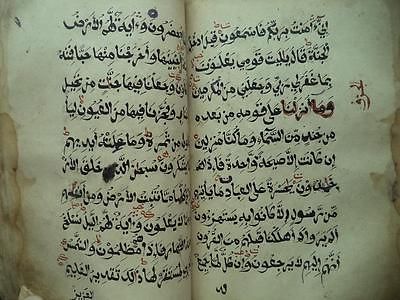 إِنِّي آمَنتُ بِرَبِّكُمْ فَاسْمَعُونِ قِيلَ ادْخُلِ
الْجَنَّةَ قَالَ يَلَيْتَ قَوْمِي يَعْلَمُونَ
بِمَا غَفَرَ لِي رَبِّي وَجَعَلَنِي مِنَ الْمُكْرَمِينَ
وَمَا أَنزَلْنَا عَلَى قَوْمِهِ مِن بَعْدِهِ
مِن جُندٍ مِّنَ السَّمَاءِ وَمَا كُنَّا مُنزِلِينَ
إِن كَانَتْ إِلَّا صَيْحَةً وَاحِدَةً فَإِذَا هُمْ
خَمِدُونَ يَحَسْرَةً عَلَى الْعِبَادِ مَا يَأْتِيهِم
مِّن رَّسُولٍ إِلَّا كَانُوا بِهِ يَسْتَهْزِءُونَ
أَلَمْ يَرَوْا كَمْ أَهْلَكْنَا قَبْلَهُم مِّنَ الْقُرُونِ
أَنَّهُمْ إِلَيْهِمْ لَا يَرْجِعُونَ وَإِن كُلٌّ لَّمَّا
مُحْضَرُونَ وَآيَةٌ لَّهُمُ الْأَرْضُ
الْمَيْتَةُ أَحْيَيْنَاهَا وَأَخْرَجْنَا مِنْهَا حَبًّا فَمِنْهُ
يَأْكُلُونَ وَجَعَلْنَا فِيهَا جَنَّاتٍ مِّن نَّخِيلٍ
وَأَعْنَابٍ وَفَجَّرْنَا فِيهَا مِنَ الْعُيُونِ لِيَأْ
كُلُوا مِن ثَمَرِهِ وَمَا عَمِلَتْهُ أَيْدِيهِمْ
أَفَلَا يَشْكُرُونَ سُبْحَنَ الَّذِي خَلَقَ الْأَزْ
وَاجَ كُلَّهَا مِمَّا تُنبِتُ الْأَرْضُ وَمِنْ أَنفُسِهِمْ
وَمِمَّا لَا يَعْلَمُونَ وَآيَةٌ لَّهُمُ اللَّيْلُ نَسْلَخُ
مِنْهُ النَّهَارَ فَإِذَا هُم مُّظْلِمُونَ وَالشَّمْسُ
تَجْرِي لِمُسْتَقَرٍّ لَّهَا ذَلِكَ تَقْدِيرُ